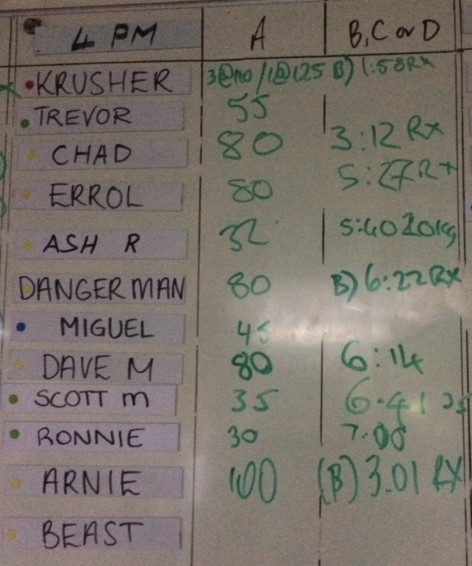 4 PM A B, C or D
KRUSHER 3@110 /1@125 B) 1:58 Rx
TREVOR 55
CHAD 80 3:12 Rx
ERROL 80 5:27 Rx
ASH R 32 5:40 20kg
DANGERMAN 80 B) 6:22 Rx
MIGUEL 45
DAVE M 80 6:14
SCOTT M 35 6.41 25
RONNIE 30 7.00
ARNIE 100 (B) 3.01 RX
BEAST